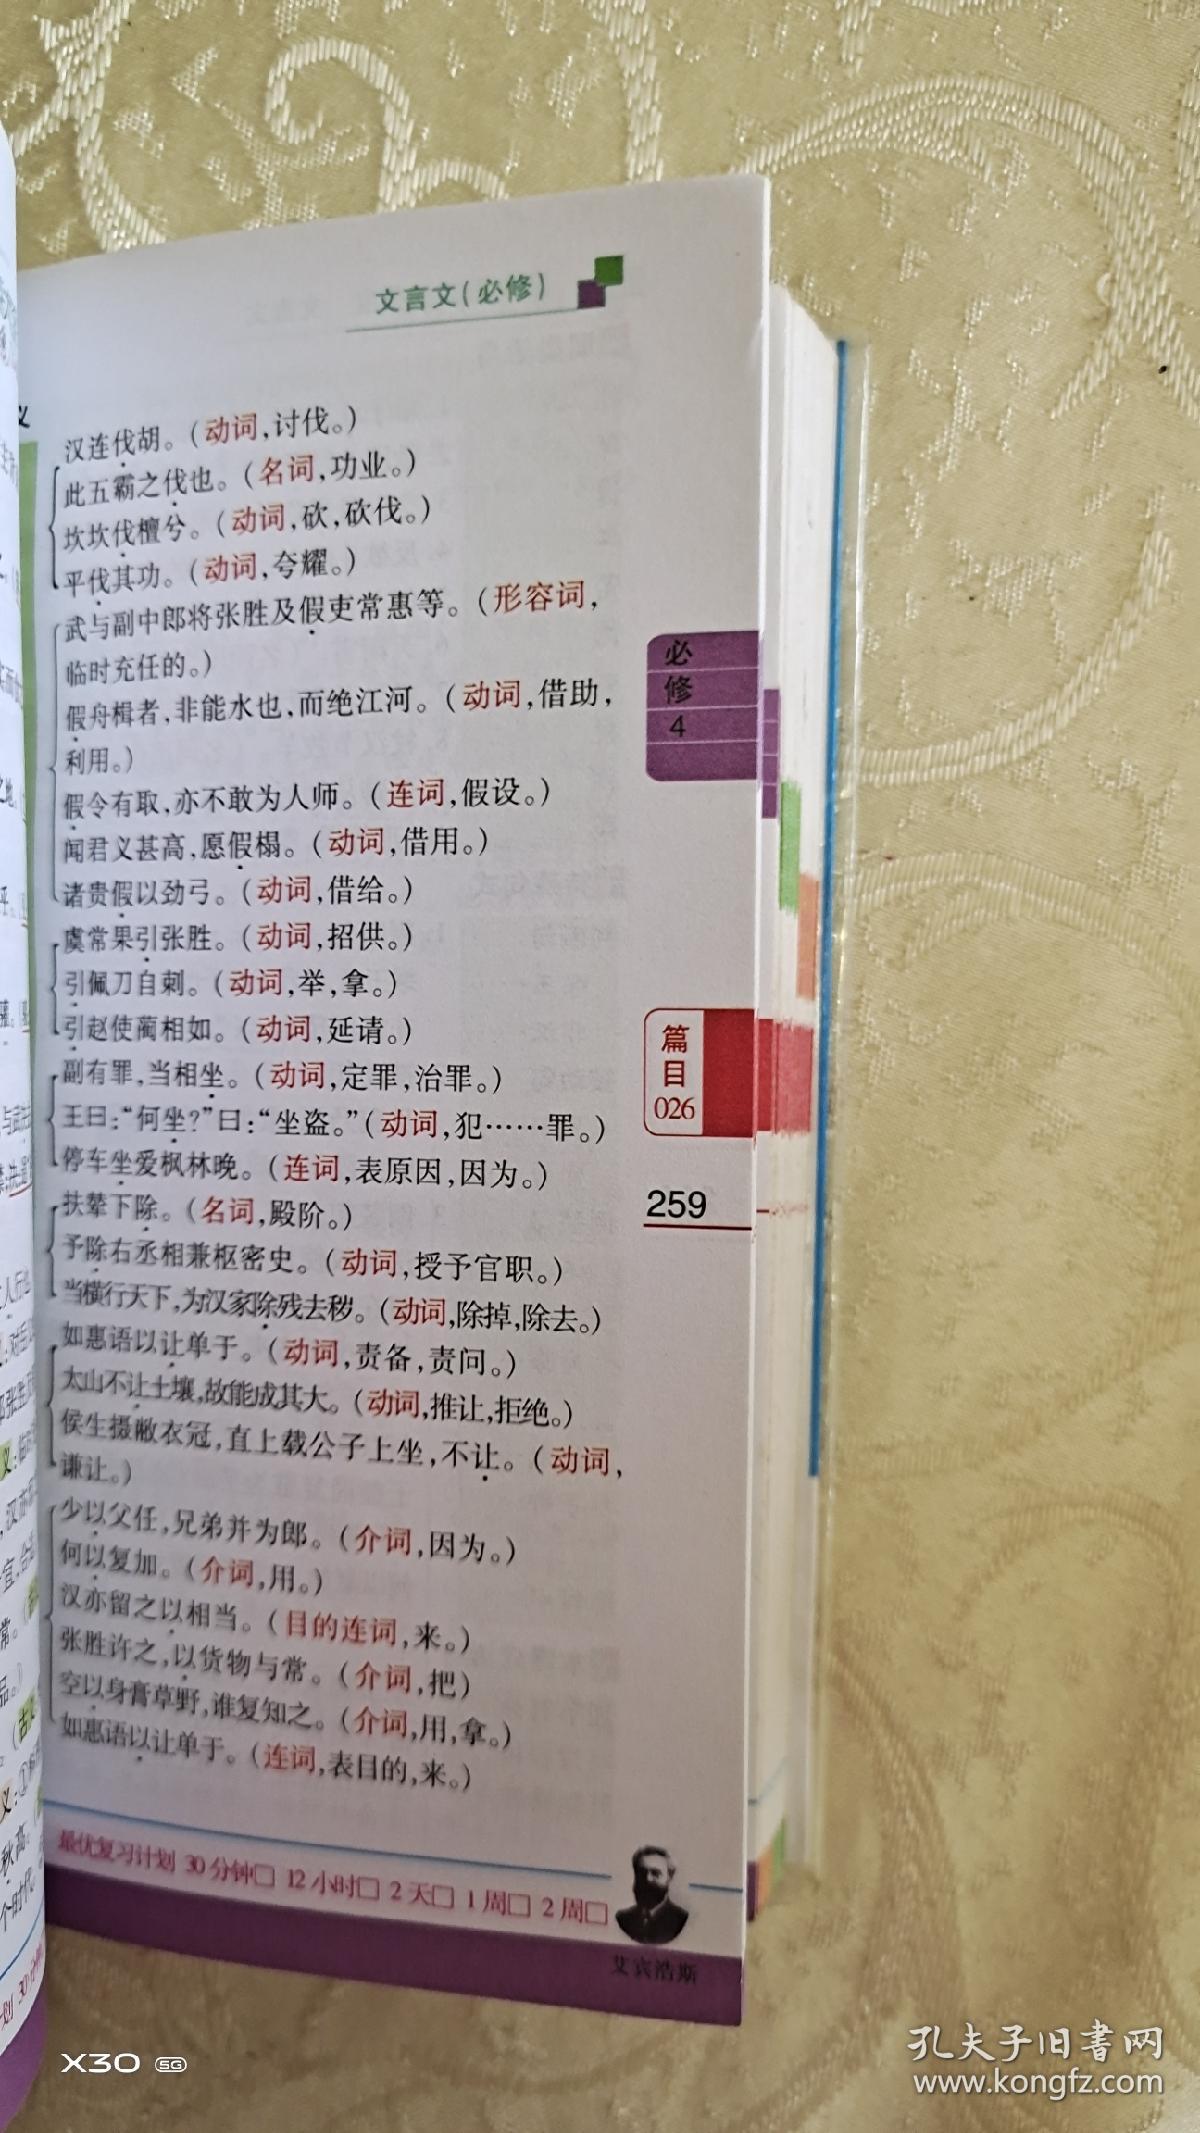 文言文（必修）
汉连伐胡。（动词，讨伐。）
此五霸之伐也。（名词，功业。）
坎坎伐檀兮。（动词，砍，砍伐。）
平伐其功。（动词，夸耀。）
武与副中郎将张胜及假吏常惠等。（形容词，
临时充任的。）
假舟楫者，非能水也，而绝江河。（动词，借助，
利用。）
假令有取，亦不敢为人师。（连词，假设。）
闻君义甚高，愿假榻。（动词，借用。）
诸贵假以劲弓。（动词，借给。）
虞常果引张胜。（动词，招供。）
引佩刀自刺。（动词，举，拿。）
引赵使蔺相如。（动词，延请。）
副有罪，当相坐。（动词，定罪，治罪。）
王曰：“何坐？”曰：“坐盗。”（动词，犯……罪。）
停车坐爱枫林晚。（连词，表原因，因为。）
扶辇下除。（名词，殿阶。）
予除右丞相兼枢密史。（动词，授予官职。）
当横行天下，为汉家除残去秽。（动词，除掉，除去。）
如惠语以让单于。（动词，责备，责问。）
太山不让土壤，故能成其大。（动词，推让，拒绝。）
侯生摄敝衣冠，直上载公子上坐，不让。（动词，
谦让。）
少以父任，兄弟并为郎。（介词，因为。）
何以复加。（介词，用。）
汉亦留之以相当。（目的连词，来。）
张胜许之，以货物与常。（介词，把）
空以身膏草野，谁复知之。（介词，用，拿。）
如惠语以让单于。（连词，表目的，来。）
必修4
篇目
026
259
最优复习计划 30分钟□ 12小时□ 2天□ 1周□ 2周□
艾宾浩斯
X30 5G
孔夫子旧书网
www.kongfz.com